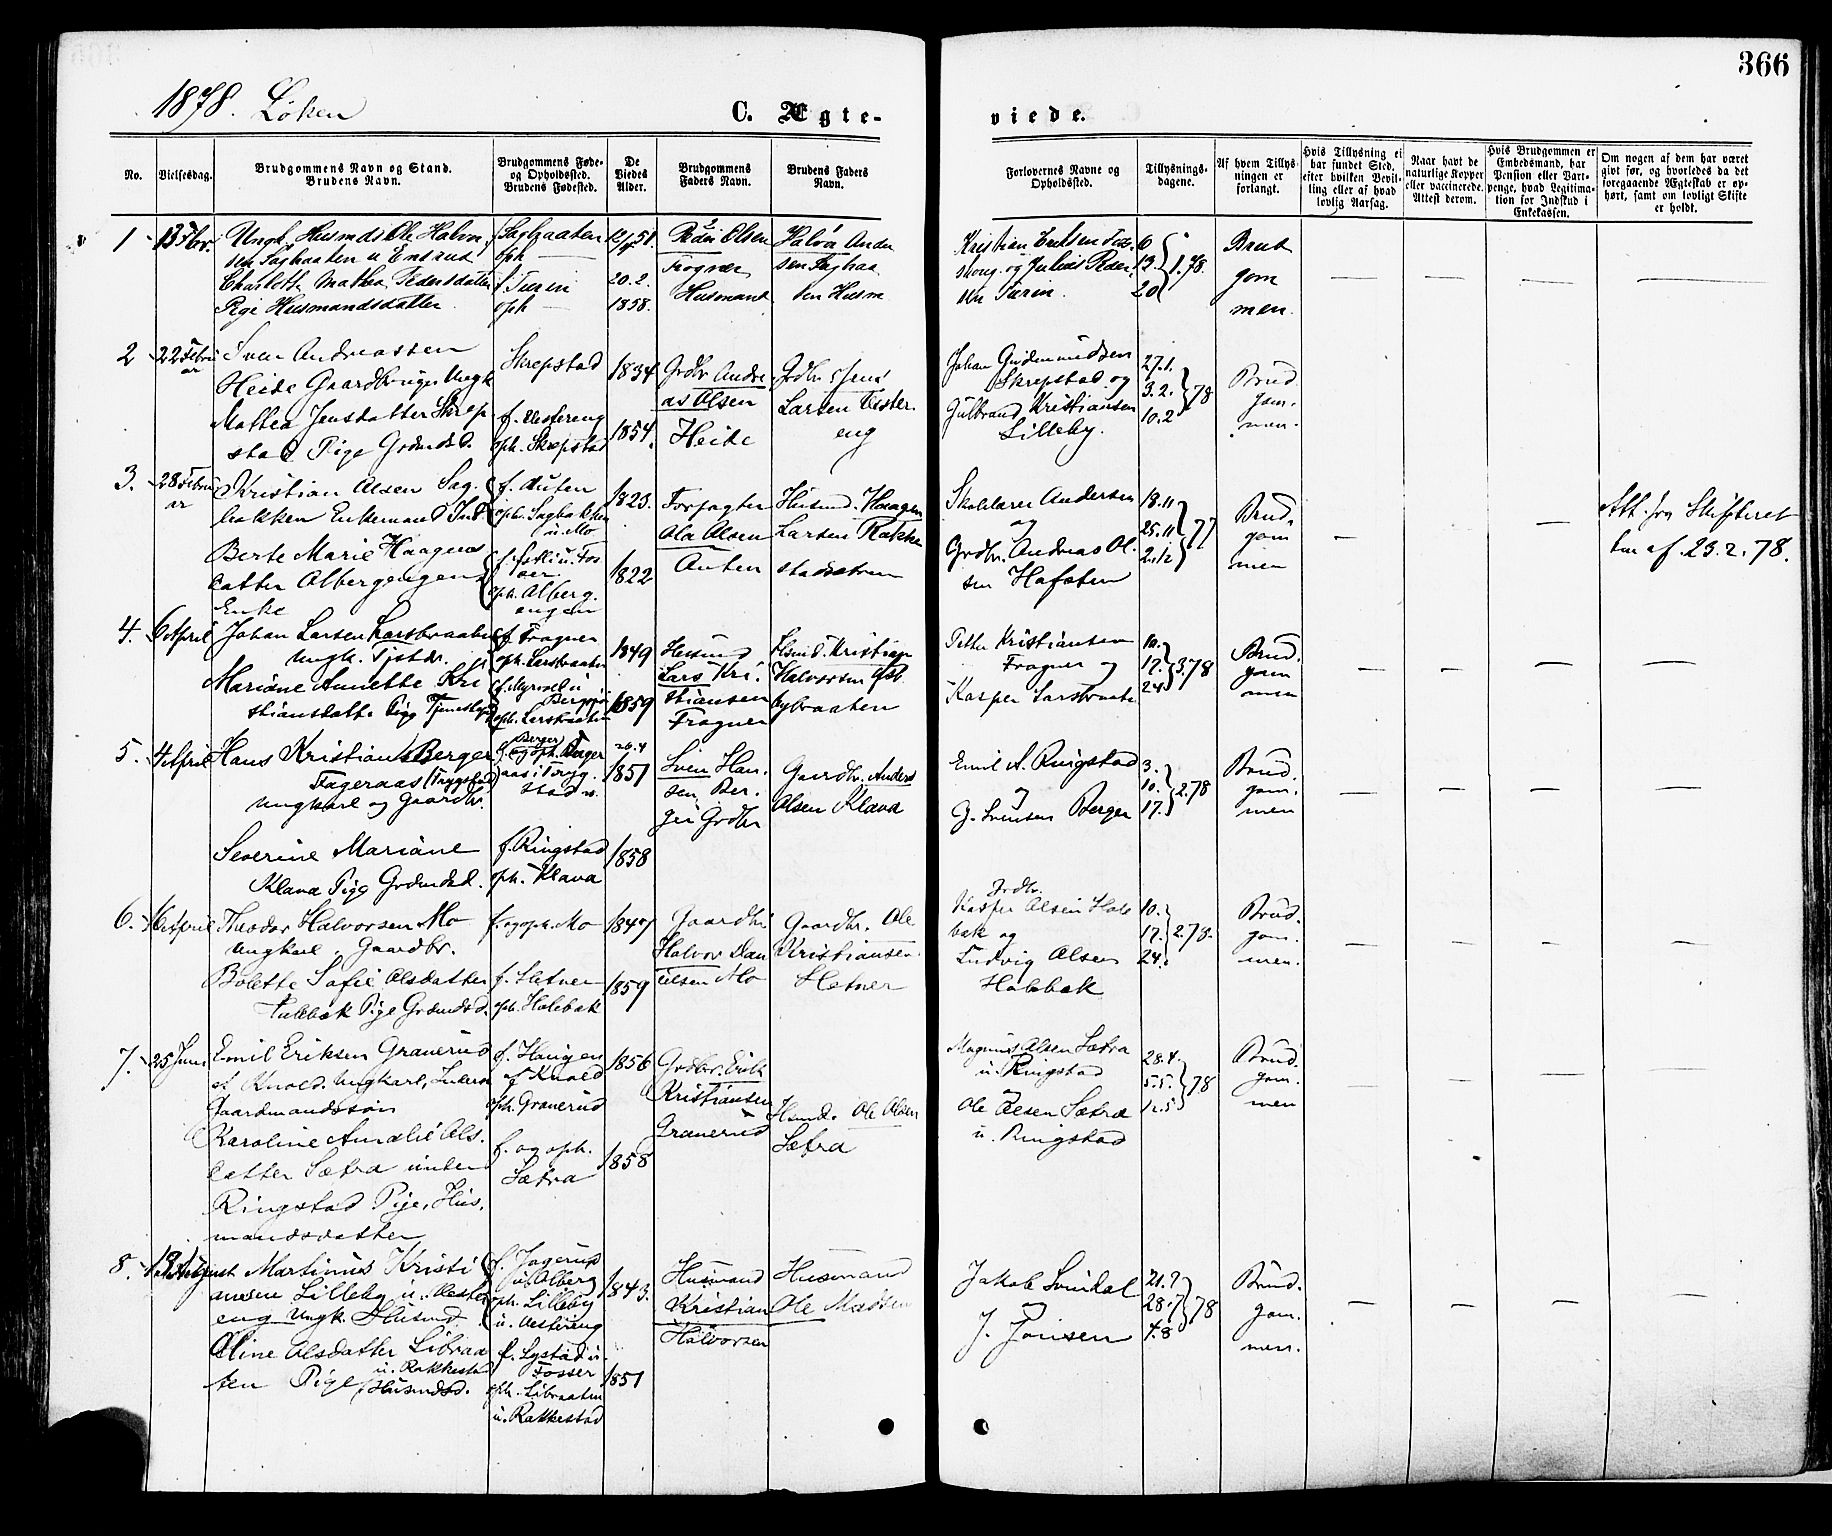 366
1878. Løken
C. Ægte-
viede.
No.
Vielsesdag.
Brudgommens Navn og Stand.
Brudens Navn.
Brudgommens Føde-
og Opholdssted.
Brudens Fødested.
De
Viedes
Alder.
Brudgommens
Faders Navn.
Brudens Faders
Navn.
Forlovernes Navne og
Opholdssted.
Tillysnings-
dagene.
Af hvem Tillys-
ningen er
forlangt.
Hvis Tillysning ei
har fundet Sted,
efter hvilken Bevil-
ling eller af hvad
lovlig Aarsag.
Naar havt de
naturlige Kopper
eller vaccinerede.
Attest derom.
Hvis Brudgommen er
Embedsmand, har
Pension eller Vart-
penge, hvad Legitima-
tion for Indskud i
Enkekassen.
Om nogen af dem har været
givt før, og hvorledes da det
foregaaende Ægteskab er op-
hørt, samt om lovligt Skifte
er holdt.
1
13 Fbr.
Ungk. Husmds Ole Halvor
sen Sagbraaten
Charlotte Mathea Pedersdatter
Pige Husmandsdatter
Sagbraaten
oph —
f. Turin
oph —
51.
20.2.
1858.
Peder Olsen
Frogner
Husmand
Halvor Ander
sen Sagbraa
ten Husm
Kristian Eriksen
skoug. og Julius Peder
sen Turin.
6
13
20
1.78.
Brud
gom
men.
2
22 Febru
ar
Sven Andreassen
Heide Gaardbruger Ungk
Mathea Jensdatter Skrep
stad Pige Grdmdsd.
Skrepstad
f. Vestereng
oph. Skrepstad
1834
1854.
Grdbr Andre
as Olsen
Heide
Grdbr Jens
Larsen Vester
eng
Johan Gudmundsen
Skrepstad og
Gulbrand Kristiansen
Lilleby.
27.1.
3.2.
10.2
78
Brud
gom.
men.
3.
28 Febru
ar
Kristian Olsen Sag.
bakken Enkemand
Berte Marie Haagens
datter Albergengen
Enke
f. Auten
oph. Sagbakken
u. Mo
oph. Alberg.
engen
1823.
1822
Forpagter
Ola Olsen
Auten
Husmd. Haagen
Larsen Rakke
stadsetren
Skolelærer Andersen
og
Grdbr. Andreas Ol.
sen Hofsten
18.11
25.11
2.12
77
Brud.
gom
men
Att. fra Skifteret
ten af 23.2.78.
4.
6 April
Johan Larsen Larsbraaten
Ungk. Tjstdr.
Mariane Annette Kri
stiansdatt. Pige Tjenestepi
f. Frogner
oph. Larsbraaten
f. Myrvold u
Berger
oph. Larsbraaten
1849
1859
Husmd
Lars Kri.
stiansen
Frogner
Husmd. Kristian
Halvorsen
bybraaten
Petter Kristiansen
Frogner og
Kasper Larsbraate
10.
17.
24
3.78
Brud.
gom
men
5.
4 April
Hans Kristian Berger
Fageraas (Trygstad)
Ungkarl og Gaardbr.
Severine Mariane
Klava Pige Grdmdsd.
f. Berger
og oph. Fager
aas i Tryg.
stad
f. Ringstad
oph. Klava
26.4
1851
1858
Sven Han.
sen Ber.
ger Grdbr
Gaardbr. Anders
Olsen Klava
Emil A. Ringstad
og
J. Svensen Berger
3.
10.
17.
2.78
Brud.
gom.
men
6.
16 April
Theodor Halvorsen Mo
Ungkarl Gaardbr.
Bolette Sofie Olsdatter
Halebæk Pige Grdmdsd.
f. og oph. Mo
f. Hetner
oph. Halebæk
1847
1859
Gaardbr
Halvor Dan
ielsen Mo
Gaardbr. Ole
Kristiansen
Hetner
Grdbr.
Kasper Olsen Hale
bæk og
Ludvig Olsen
Halebæk
10.
17.
24.
2.78.
Brud.
gom.
men.
7.
25 Juni
Emil Eriksen Granerud
af Knold. Ungkarl,
Gaardmandssøn
Karoline Amalie Ols.
datter Sætra under
Ringstad Pige, Hus.
mandsdatter
f. Haugen
af Knold
oph. Granerud
f. og oph.
Sætra
1856
1858
Grdbr. Erik
Kristiansen
Granerud
Husmd. Ole Olsen
Sætra
Magnus Olsen Sætra
u. Ringstad
Ole Olsen Sætra
u. Ringstad
28.4.
5.5.
12.5
78
Brud.
gom.
men
8.
13 August
Martinus Kristi
ansen Lilleby u. Vester
eng Ungk. Husmd.
Oline Olsdatter Libraa
ten Pige u. Rakkestad
Husmdsd.
f. Jagerud
u. Alberg
oph. Lilleby
u. Vestereng
f. Lystad u.
Fosser
oph. Libraaten
u. Rakkestad
1843.
1851
Husmand
Kristian
Halvorsen
Husmand
Ole Madsen
Jakob Svindal
og
J. Jonsen
21.7
28.7
4.8
78
Brud.
gom.
men.